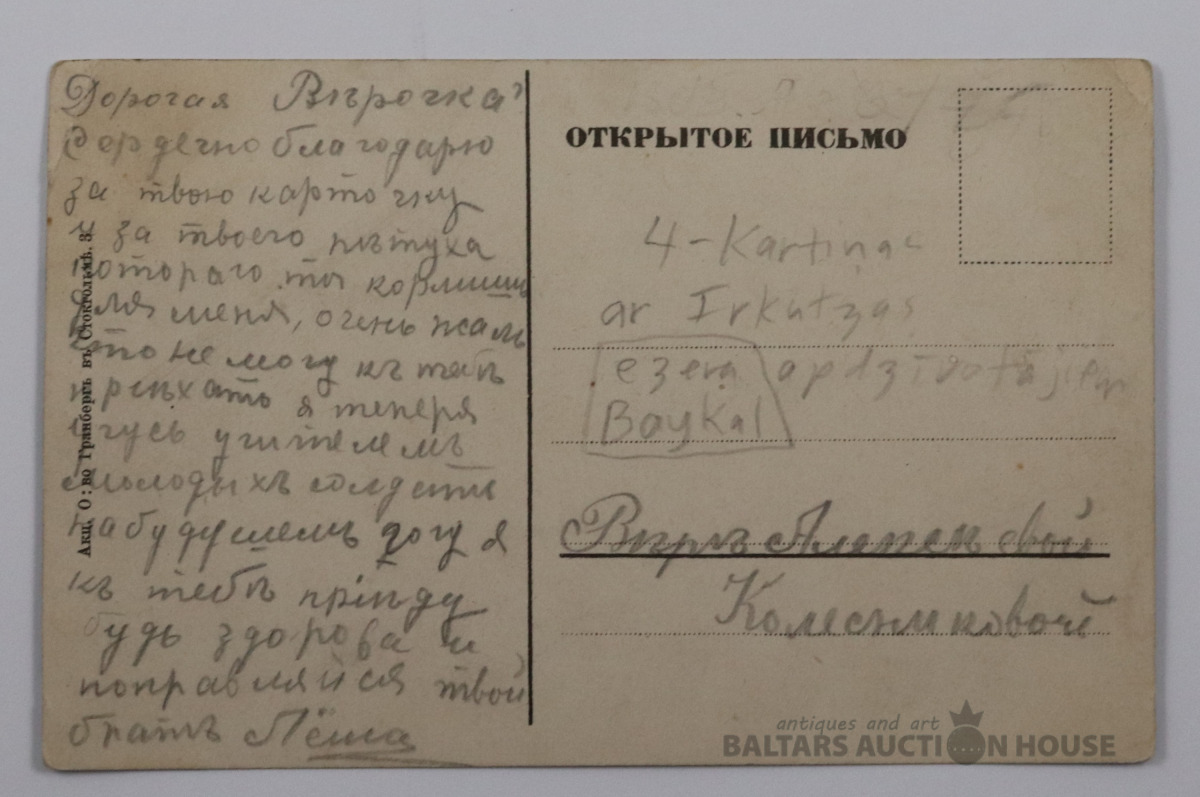 Дорогая Вѣрочка
Сердечно благодарю
за твою карточку
и за твоего пѣтуха
котораго ты кормишь
для меня, очень жаль
что не могу къ тебѣ
пріѣхать я теперя
учусь учителемъ
молодыхъ солдатъ
на будущемъ году я
къ тебѣ пріѣду
будь здорова и
поправляйся твой
братъ Лёша
Акц. О:во Гранбергъ въ Стокгольмѣ. 3.
ОТКРЫТОЕ ПИСЬМО
4-Kartiņas
ar Irkutzas
ezera apdzīvotājiem
Baykal
Вѣръ
Колесниковой
antiques and art
BALTARS AUCTION HOUSE